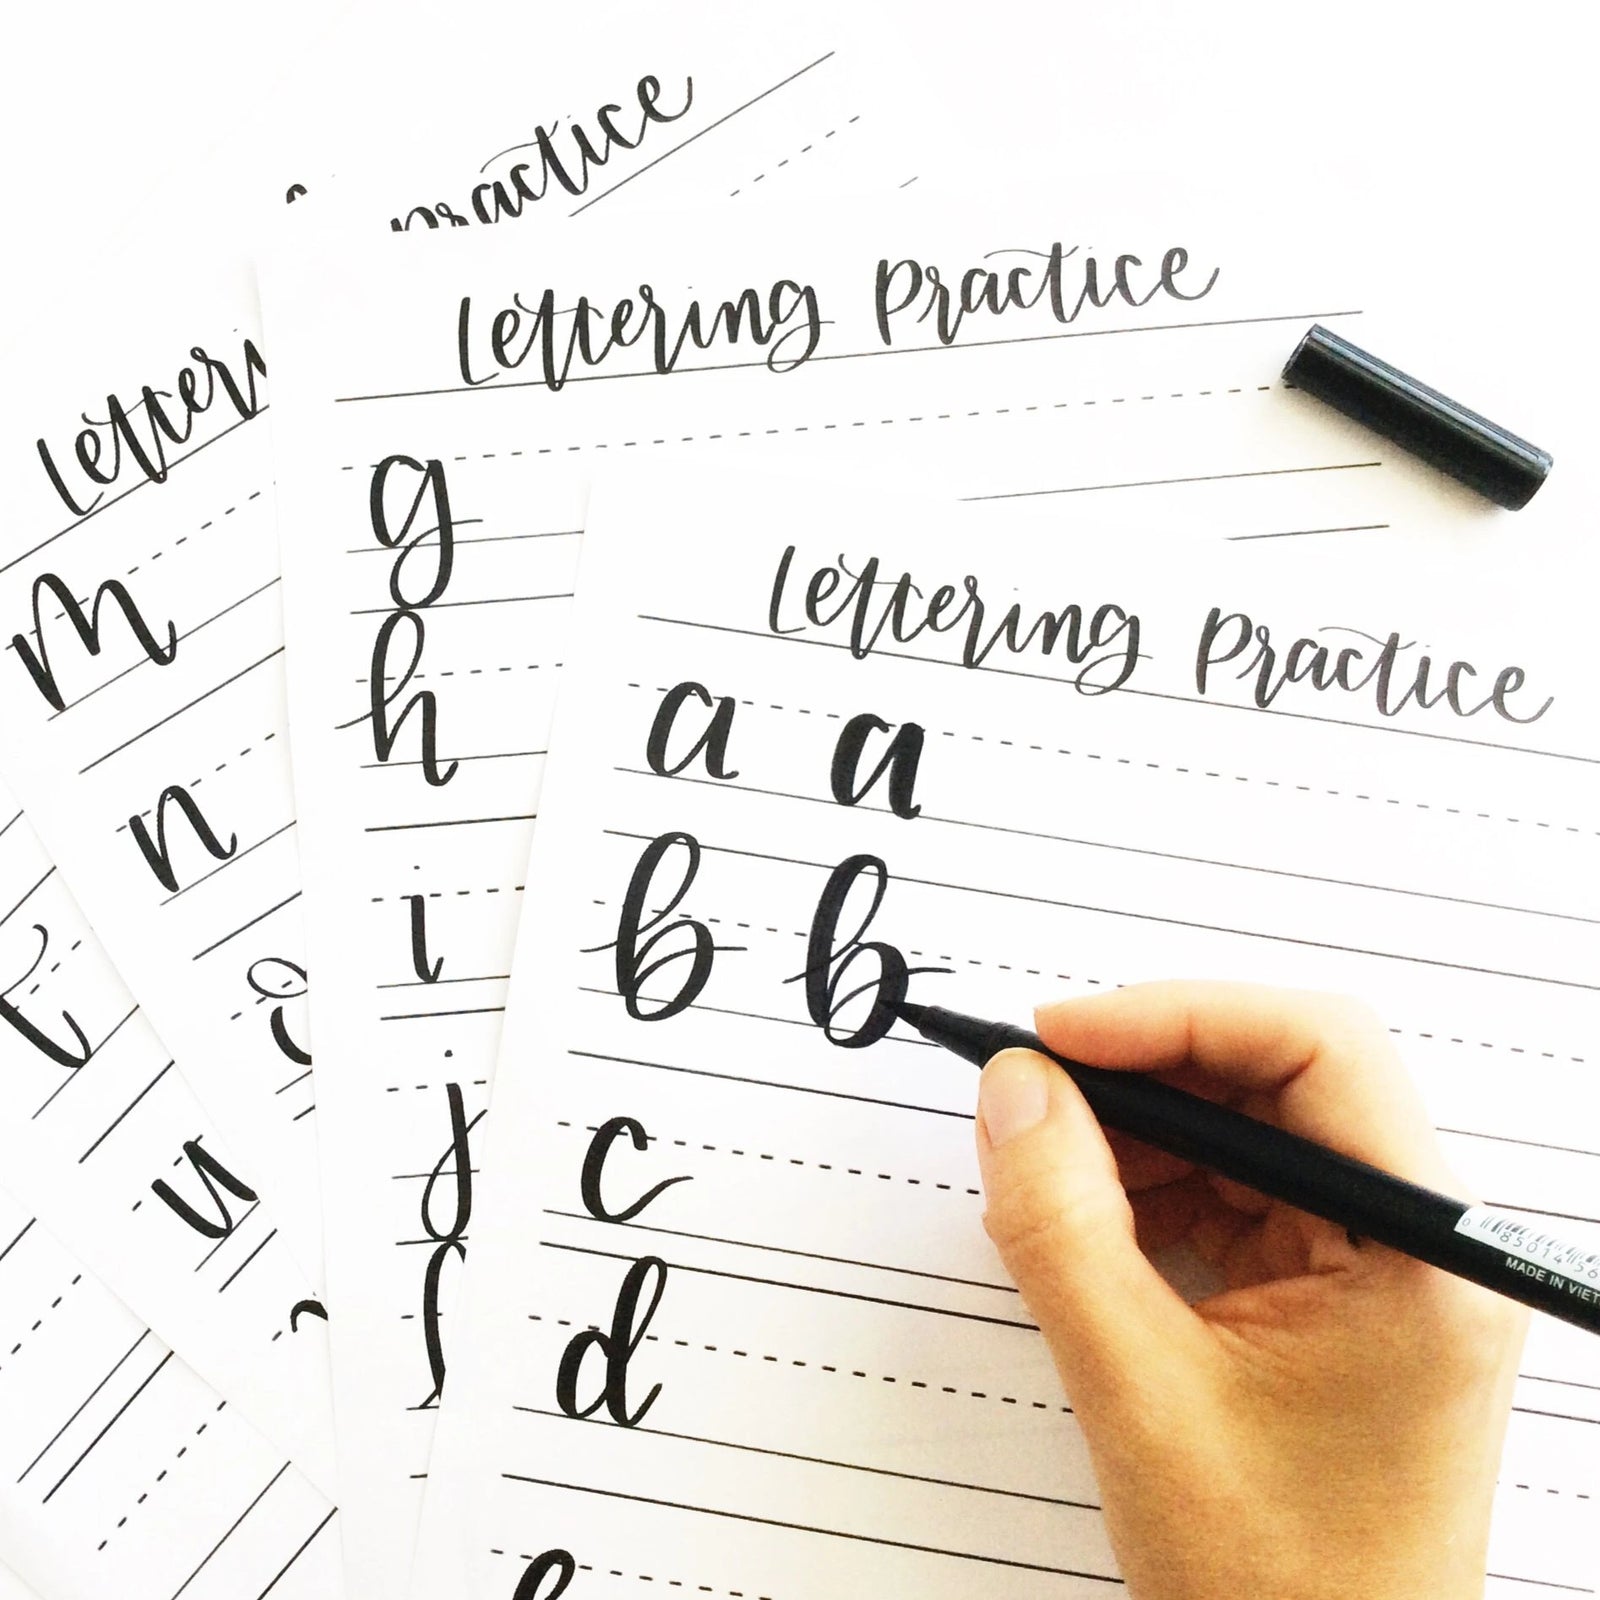 Practice
Lettering Practice
Letteri
Lettering Practice
g
h
i
j
m
n
o
a a
b b
c
d
t
u
MADE IN VIET